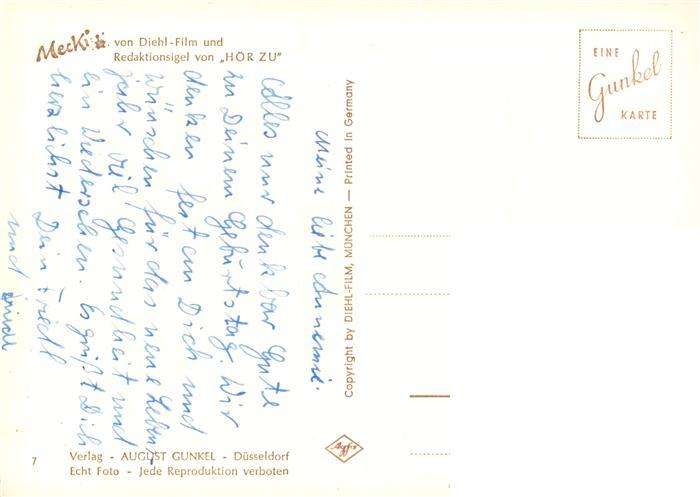 Mecki
von Diehl-Film und
Redaktionsigel von „HÖR ZU"
EINE
Gunkel
KARTE
Meine liebe Annemie.
Alles nur denkbar Gute
zu Deinem Geburtstag. Wir
denken fest an Dich und
wünschen für das neue Lebens-
jahr viel Gesundheit und
ein Wiedersehen. Es grüßt Dich
herzlichst Dein Friedl
und
Copyright by DIEHL-FILM, MÜNCHEN — Printed in Germany
7
Verlag - AUGUST GUNKEL - Düsseldorf
Echt Foto - Jede Reproduktion verboten
Agfa